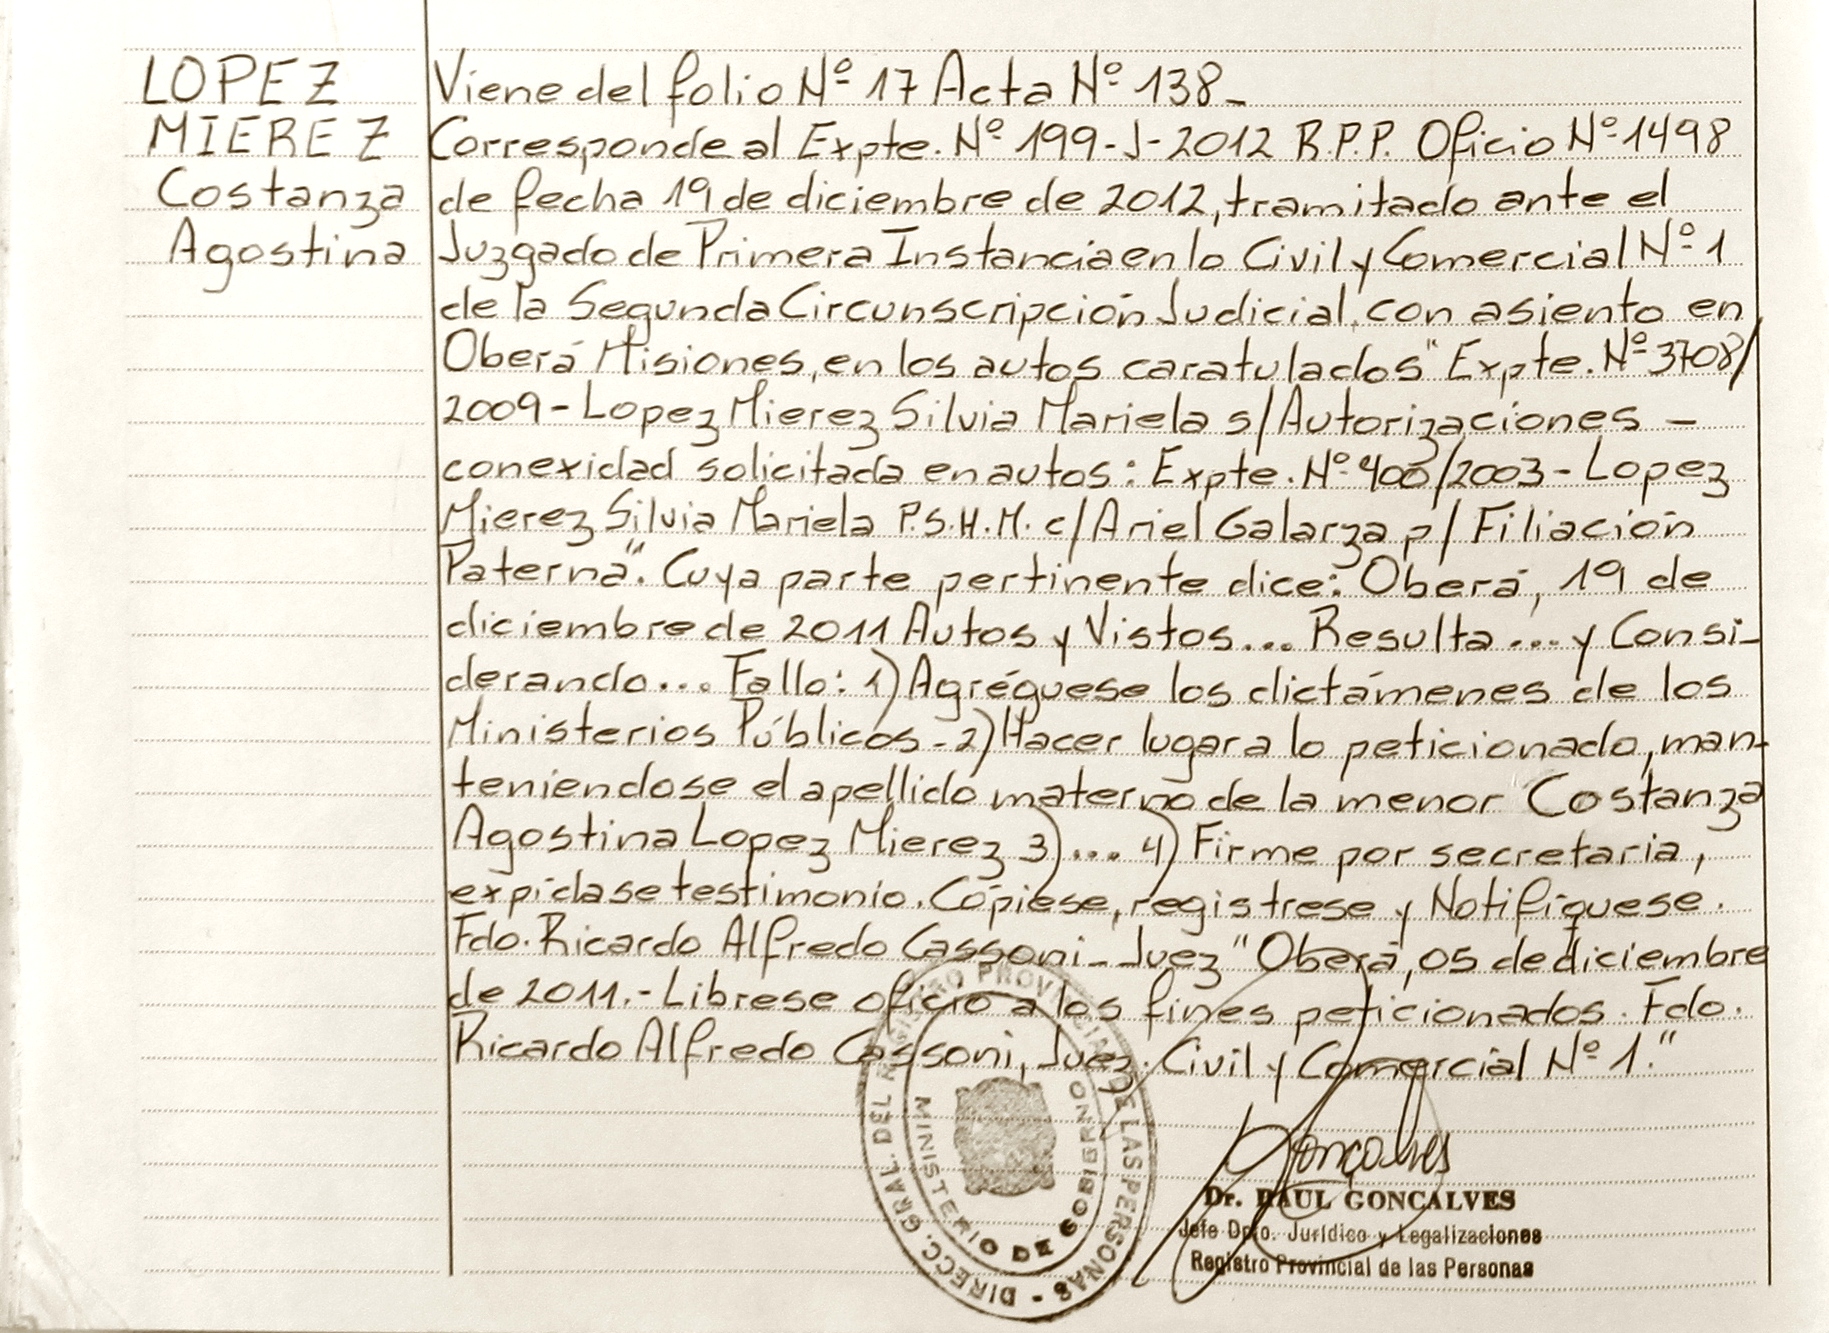 LOPEZ
MIEREZ
Costanza
Agostina
Viene del folio Nº 17 Acta Nº 138_
Corresponde al Expte. Nº 199-J-2012 R.P.P. Oficio Nº 1498
de fecha 19 de diciembre de 2012, tramitado ante el
Juzgado de Primera Instancia en lo Civil y Comercial Nº 1
de la Segunda Circunscripción Judicial, con asiento en
Oberá Misiones, en los autos caratulados "Expte. Nº 3708/
2009 - Lopez Mierez Silvia Mariela s/Autorizaciones -
conexidad solicitada en autos: Expte. Nº 400/2003 - Lopez
Mierez Silvia Mariela P.S.H.M. c/ Ariel Galarza p/ Filiación
Paterna". Cuya parte pertinente dice: Oberá, 19 de
diciembre de 2011 Autos y Vistos... Resulta ... y Consi-
derando... Fallo: 1) Agréguese los dictámenes de los
Ministerios Públicos - 2) Hacer lugar a lo peticionado, man-
teniendose el apellido materno de la menor Costanza
Agostina Lopez Mierez 3)... 4) Firme por secretaria,
expídase testimonio. Cópiese, registrese y Notifíquese.
Fdo. Ricardo Alfredo Cassoni - Juez "Oberá, 05 de diciembre
de 2011.- Librese oficio a los fines peticionados. Fdo.
Ricardo Alfredo Cassoni, Juez. Civil y Comercial Nº 1."
DIRECC. GRAL. DEL REGISTRO PROVINCIAL DE LAS PERSONAS -
MINISTERIO DE GOBIERNO
Gonçalves
Dr. RAUL GONCALVES
Jefe Dpto. Jurídico y Legalizaciones
Registro Provincial de las Personas